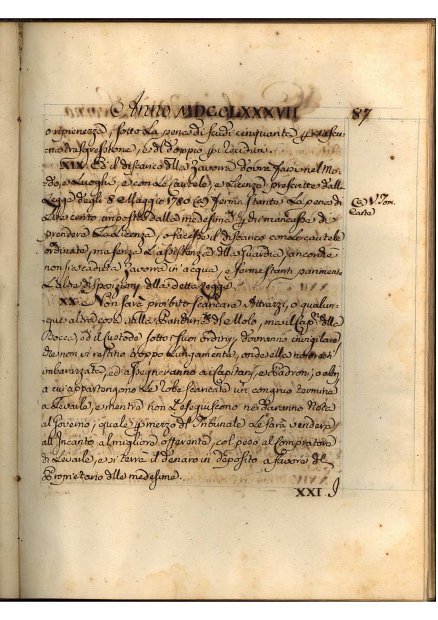 Anno MDCCLXXXVII
87
o ripienezza, sotto la pena di scudi cinquanta per ciascu-
na trasgressione, e di doppio per recidiva.
XIX. Ed il discarico della Zavorra dovrà farsi nel Mo-
do, e Luoghi, e con le Cautele, e Licenze prescritte dalla
Legge degli 8 Maggio 1780 (a) ferma stante la pena di
Lire cento imposta dalla medesima per chi mancasse di
prendere la Licenza, o facesse il discarico con le cautele
ordinate, ma senza l'assistenza della Guardia, ancorche
non sia caduta Zavorra in acqua, e ferme stanti parimente
l'altre disposizioni della detta Legge.
(a) V. Tom.
Carte
XX. Non sarà proibito scaricare Attrazzi, o qualun-
que altra cosa sulla Banchina del Molo, ma il Capno della
Bocca, ed il Custode sotto i suoi ordini, dovranno invigilare
che non vi restino troppo lungamente, onde ella non resti
imbarazzata, ed assegneranno ai Capitani, e Padroni, o altri
a cui appartengono le Robe scaricate un congruo termine
a Levarle, e mentre non l'eseguiscono ne daranno Nota
al Governo, quale per mezzo del Tribunale le farà vendere
all'Incanto al migliore offerente, col peso al Compratore
di Levarle, e si terrà il denaro in deposito a favore del
Proprietario delle medesime.
XXI. I